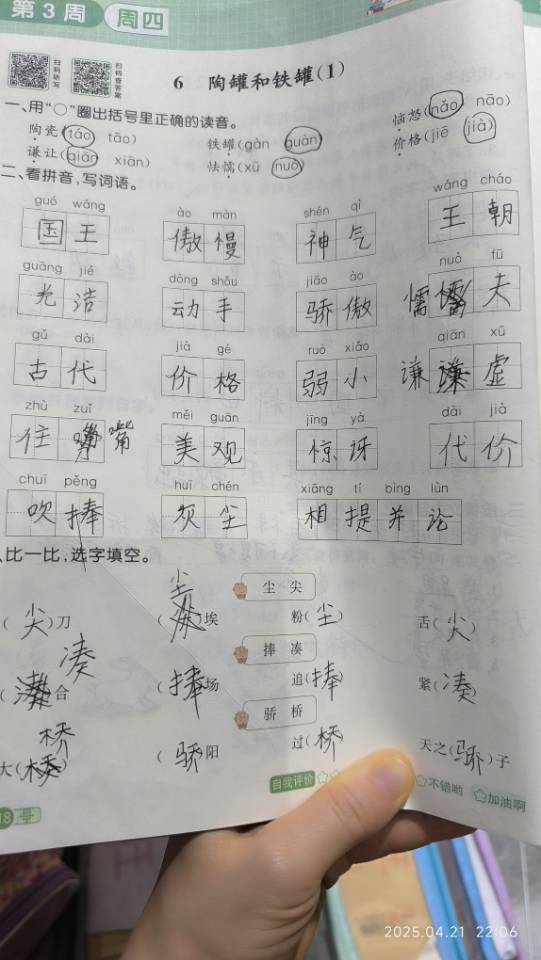 第3周 周四
扫码听写 扫码查答案
6 陶罐和铁罐(1)
一、用“○”圈出括号里正确的读音。
陶瓷(táo tāo) 铁罐(gàn guàn) 恼怒(nǎo nāo)
谦让(qiān xiān) 怯懦(xū nuò) 价格(jiē jià)
二、看拼音,写词语。
guó wáng ào màn shén qì wáng cháo
国王 傲慢 神气 王朝
guāng jié dòng shǒu jiāo ào nuò fū
光洁 动手 骄傲 懦 夫
gǔ dài jià gé ruò xiǎo qiān xū
古代 价格 弱小 谦 虚
zhù zuǐ měi guān jīng yà dài jià
住 嘴 美观 惊讶 代价
chuī pěng huī chén xiāng tí bìng lùn
吹捧 灰尘 相提并论
、比一比,选字填空。
尘 尖
(尖)刀 (尘)埃 粉(尘) 舌(尖)
捧 凑
(凑)合 (捧)场 追(捧) 紧(凑)
骄 桥
大(桥) (骄)阳 过(桥) 天之(骄)子
自我评价 不错哟 加油啊
18
2025.04.21 22:06